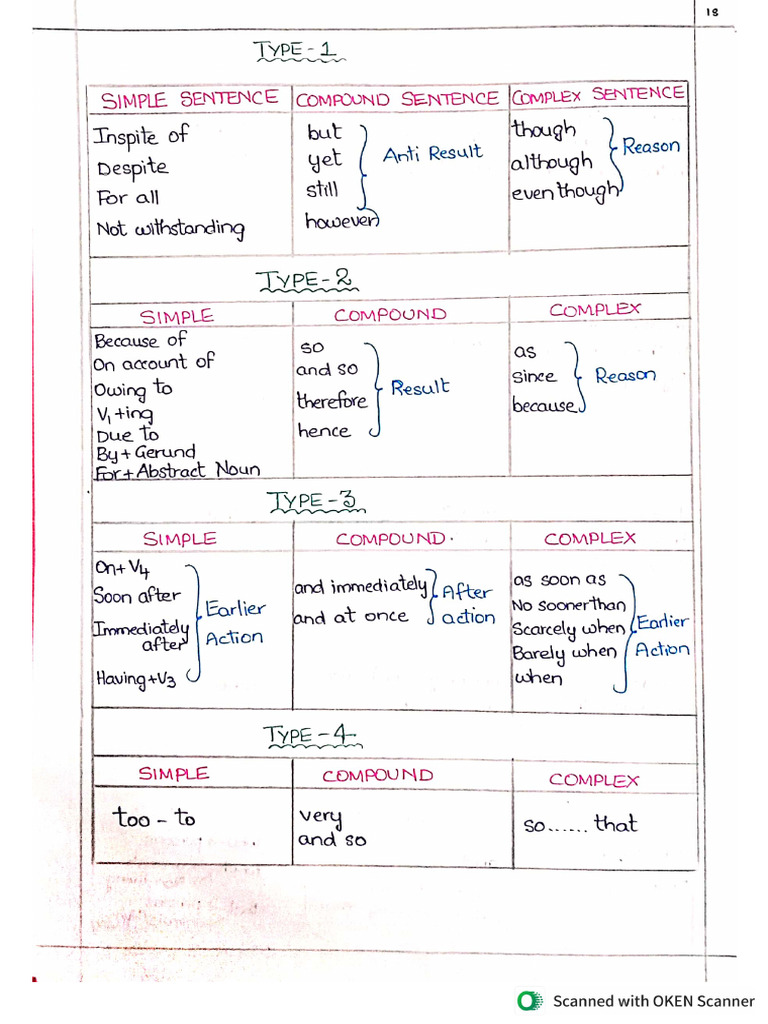 18
TYPE-1
SIMPLE SENTENCE COMPOUND SENTENCE COMPLEX SENTENCE
Inspite of
Despite
For all
Not withstanding
but
yet
still
however
Anti Result
though
although
even though
Reason
TYPE-2
SIMPLE COMPOUND COMPLEX
Because of
On account of
Owing to
V1+ing
Due to
By+Gerund
For+Abstract Noun
so
and so
therefore
hence
Result
as
since
because
Reason
TYPE-3
SIMPLE COMPOUND. COMPLEX
On+V4
Soon after
Immediately
after
Having+V3
Earlier
Action
and immediately
and at once
After
action
as soon as
No sooner than
Scarcely when
Barely when
when
Earlier
Action
TYPE-4
SIMPLE COMPOUND COMPLEX
too - to
very
and so
so...... that
Scanned with OKEN Scanner